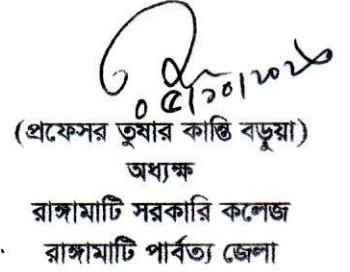 ০৫/১০/২০২৬
(প্রফেসর তুষার কান্তি বড়ুয়া)
অধ্যক্ষ
রাঙ্গামাটি সরকারি কলেজ
রাঙ্গামাটি পার্বত্য জেলা